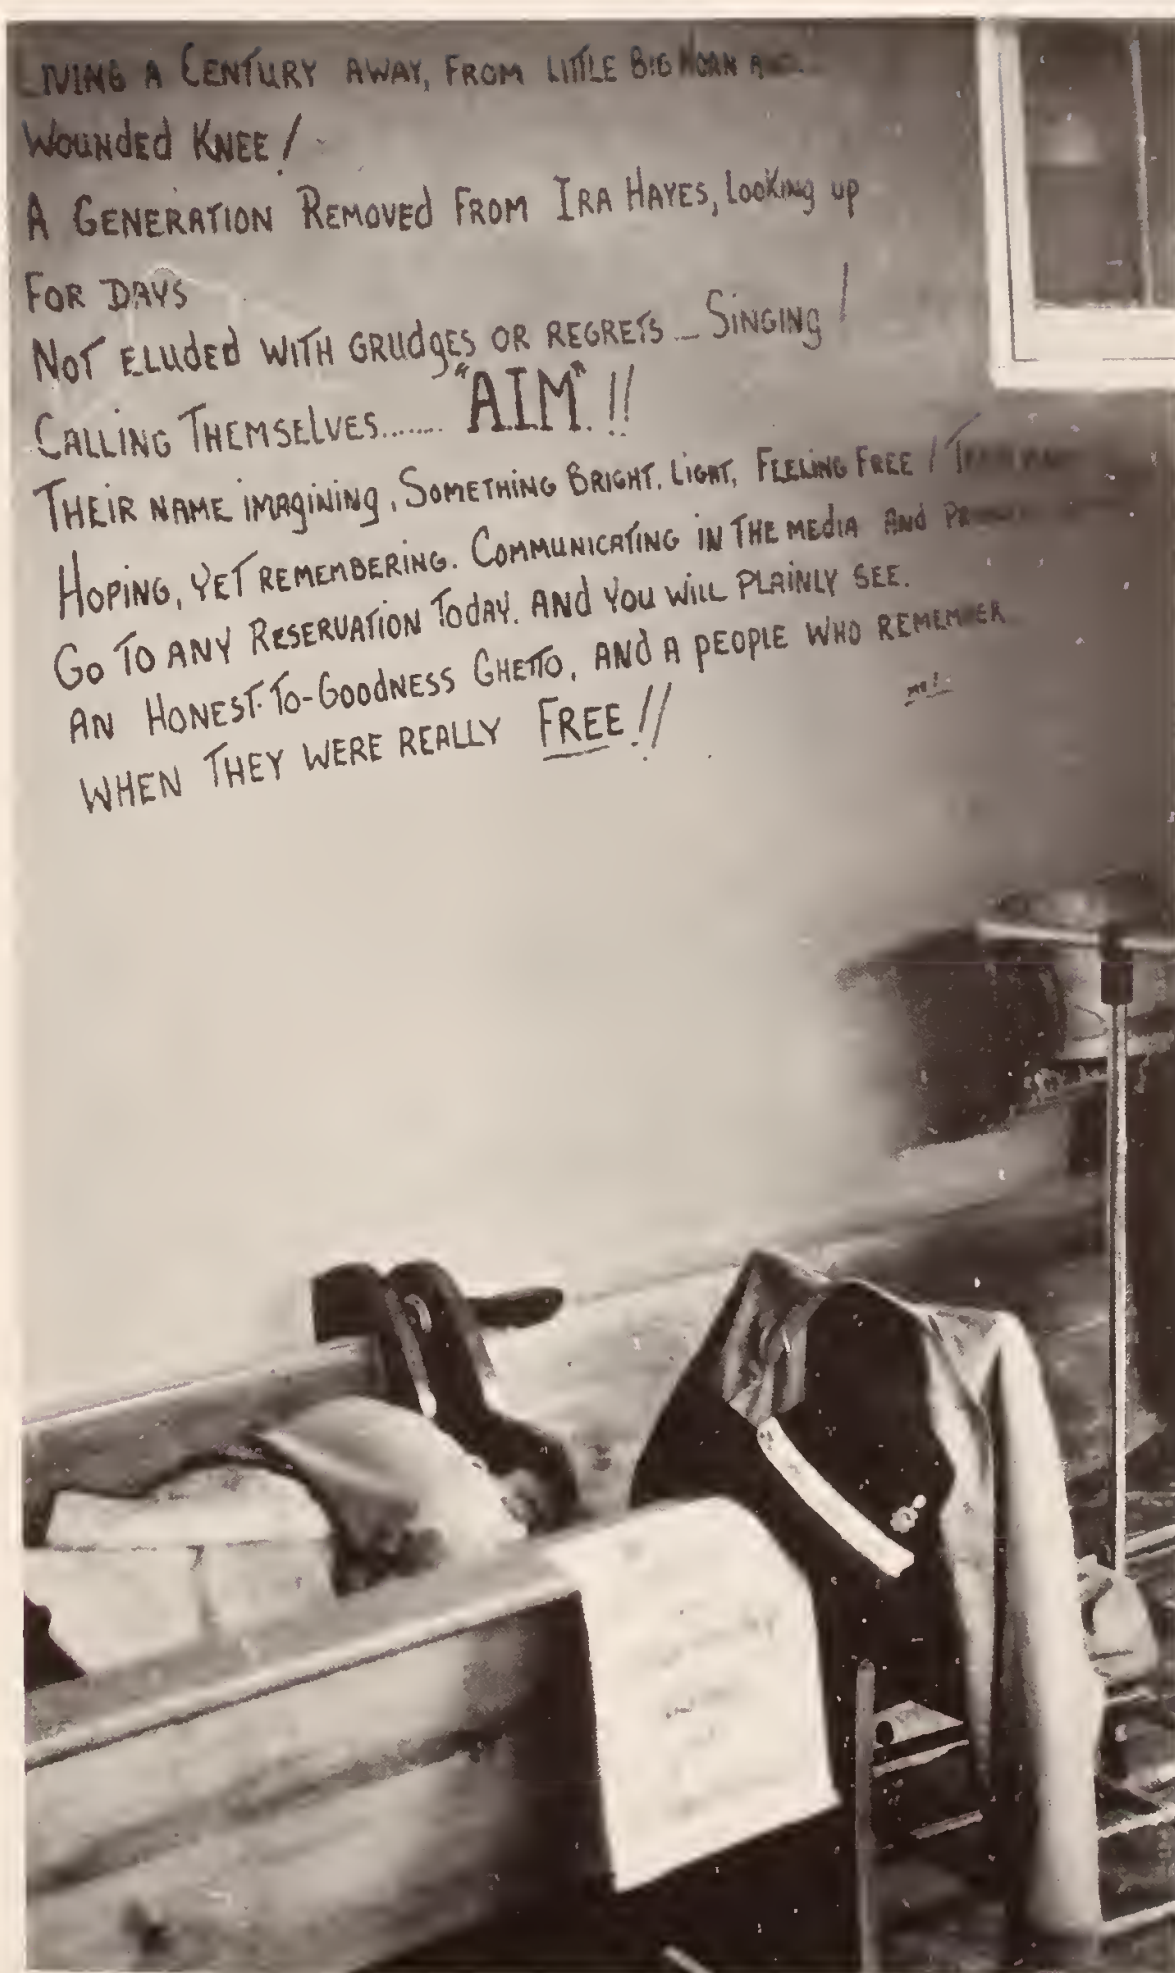 LIVING A CENTURY AWAY, FROM LITTLE BIG HORN
WOUNDED KNEE!
A GENERATION REMOVED FROM IRA HAYES, LOOKING UP
FOR DAYS
NOT ELUDED WITH GRUDGES OR REGRETS ... SINGING!
CALLING THEMSELVES....... "A.I.M." !!
THEIR NAME IMAGINING, SOMETHING BRIGHT. LIGHT, FEELING FREE!
HOPING, YET REMEMBERING. COMMUNICATING IN THE MEDIA AND
GO TO ANY RESERVATION TODAY. AND YOU WILL PLAINLY SEE.
AN HONEST-TO-GOODNESS GHETTO, AND A PEOPLE WHO REMEMBER
WHEN THEY WERE REALLY FREE!!